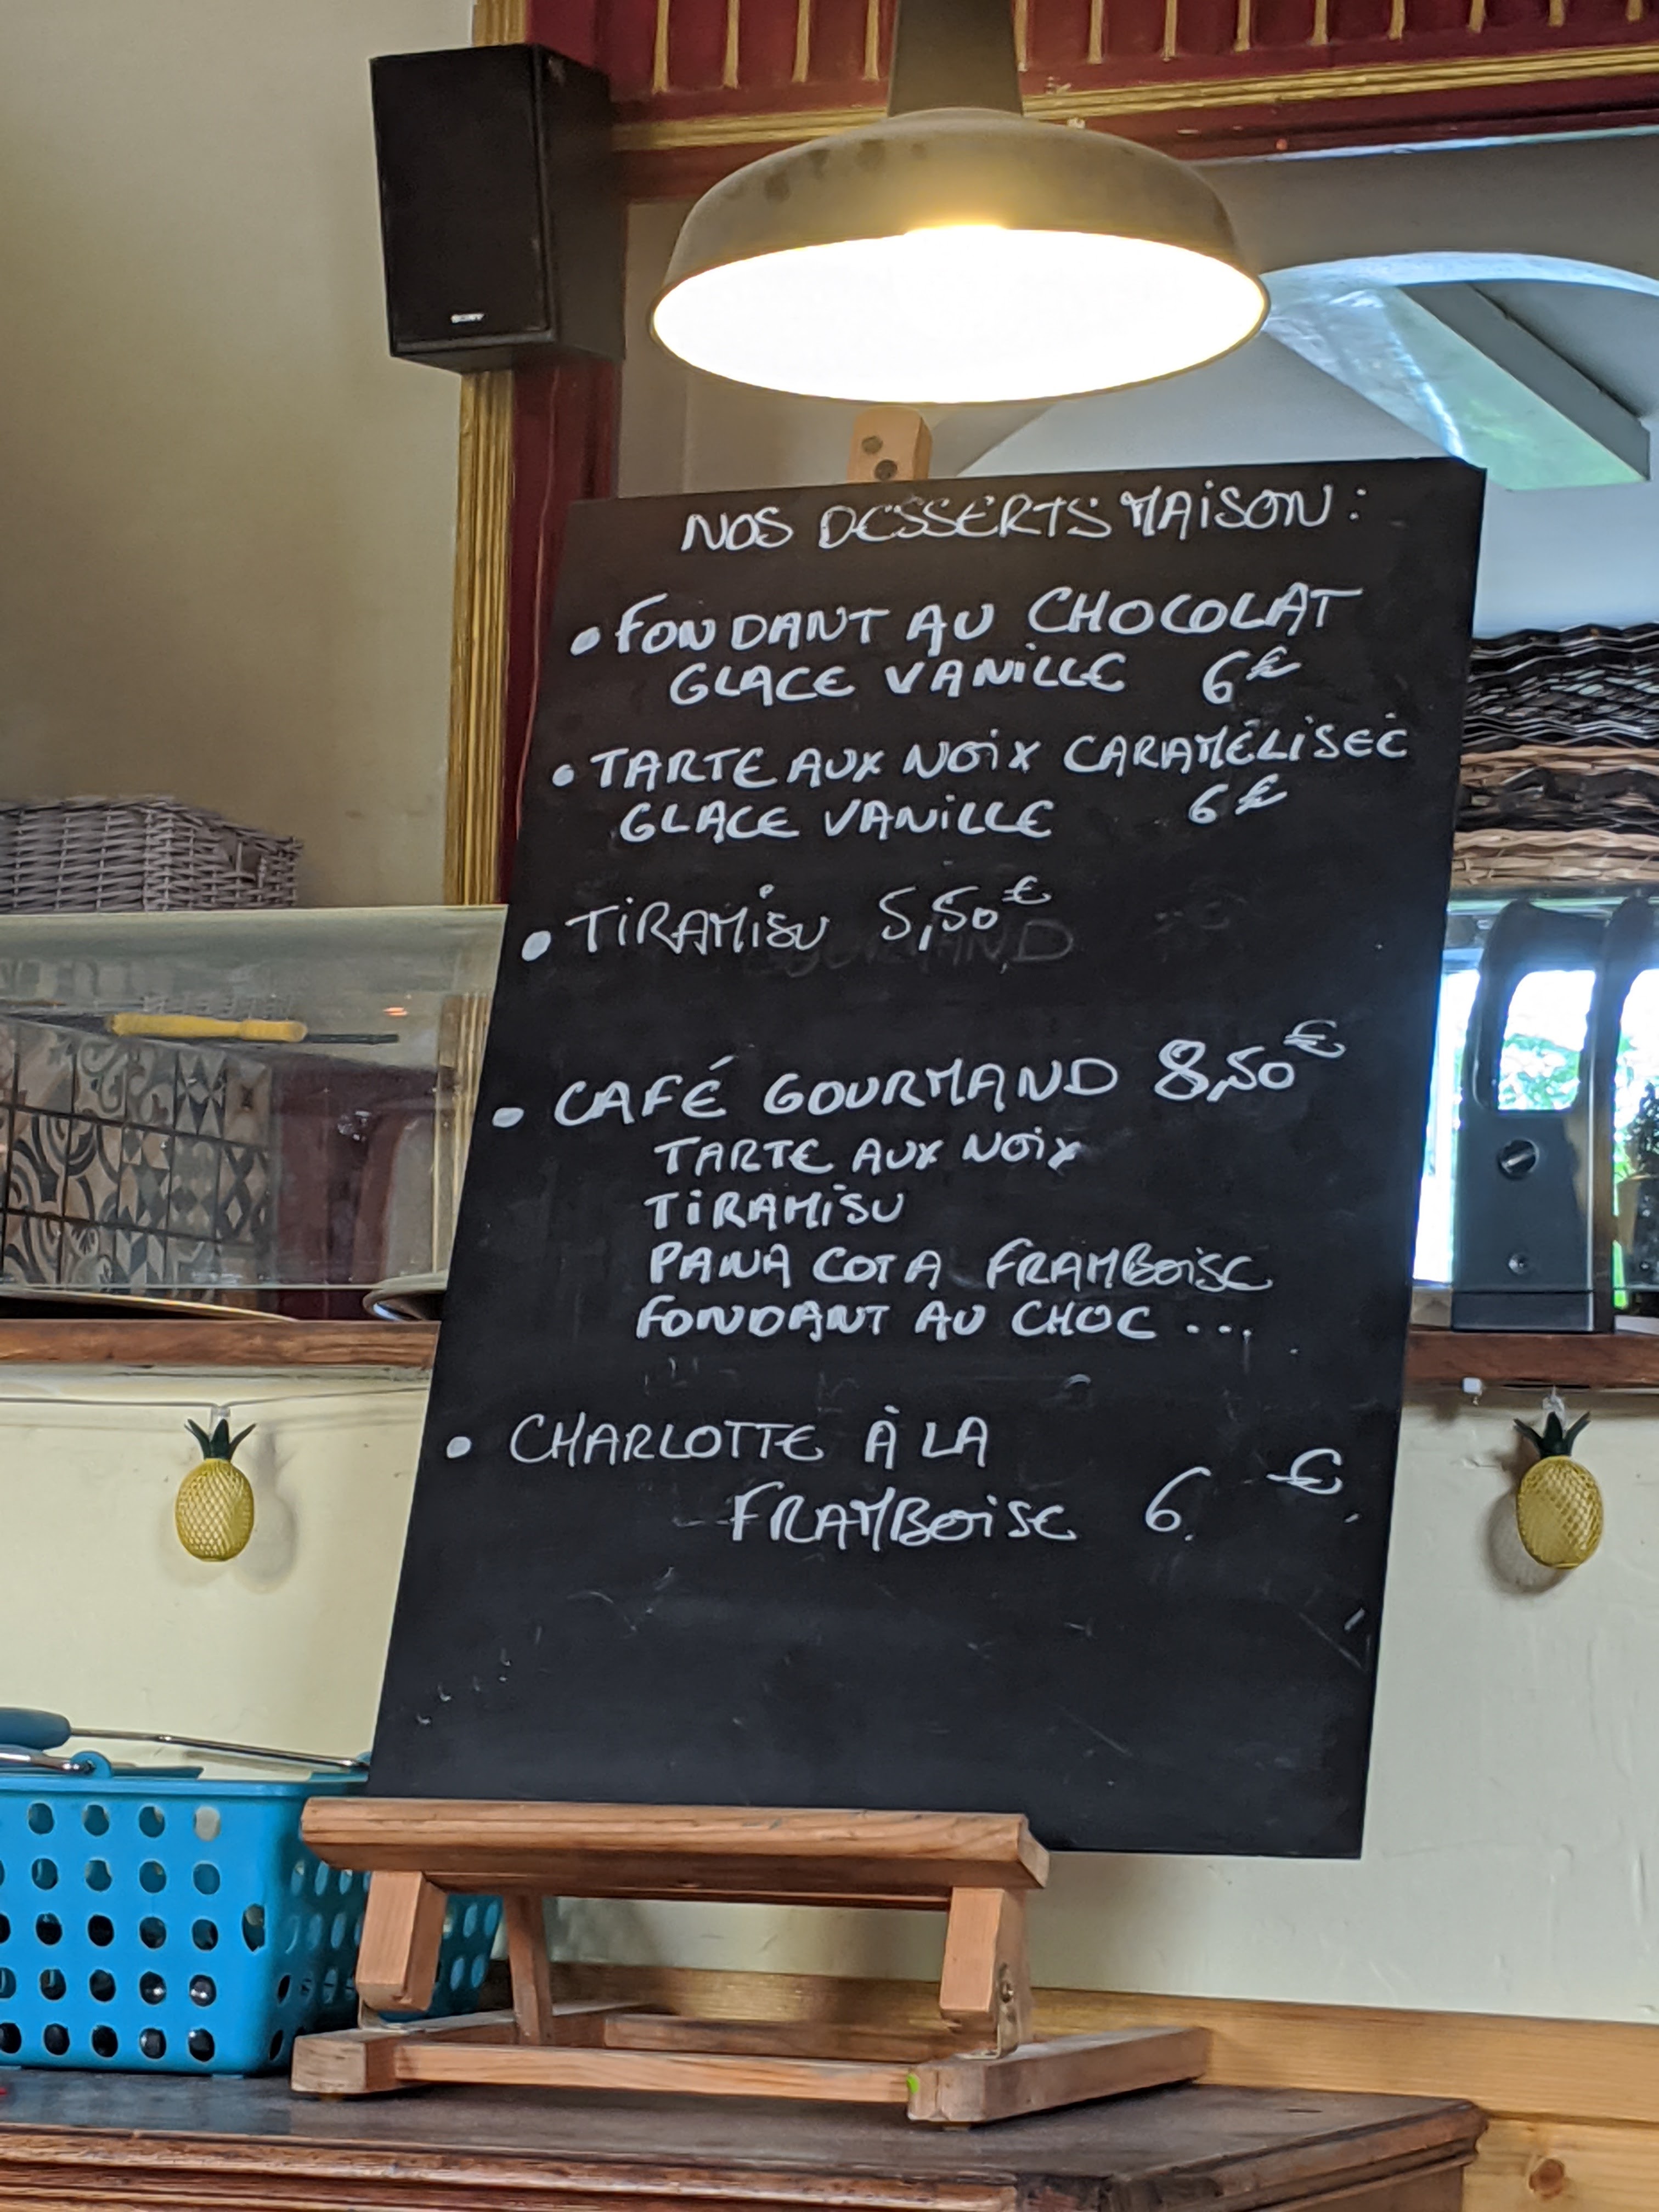 SONY
NOS DESSERTS MAISON :
• FONDANT AU CHOCOLAT
GLACE VANILLE 6€
• TARTE AUX NOIX CARAMÉLISEÉ
GLACE VANILLE 6€
• TIRAMISU 5,50€
• CAFÉ GOURMAND 8,50€
TARTE AUX NOIX
TIRAMISU
PANA COTA FRAMBOISE
FONDANT AU CHOC ...
• CHARLOTTE À LA
FRAMBOISE 6 €